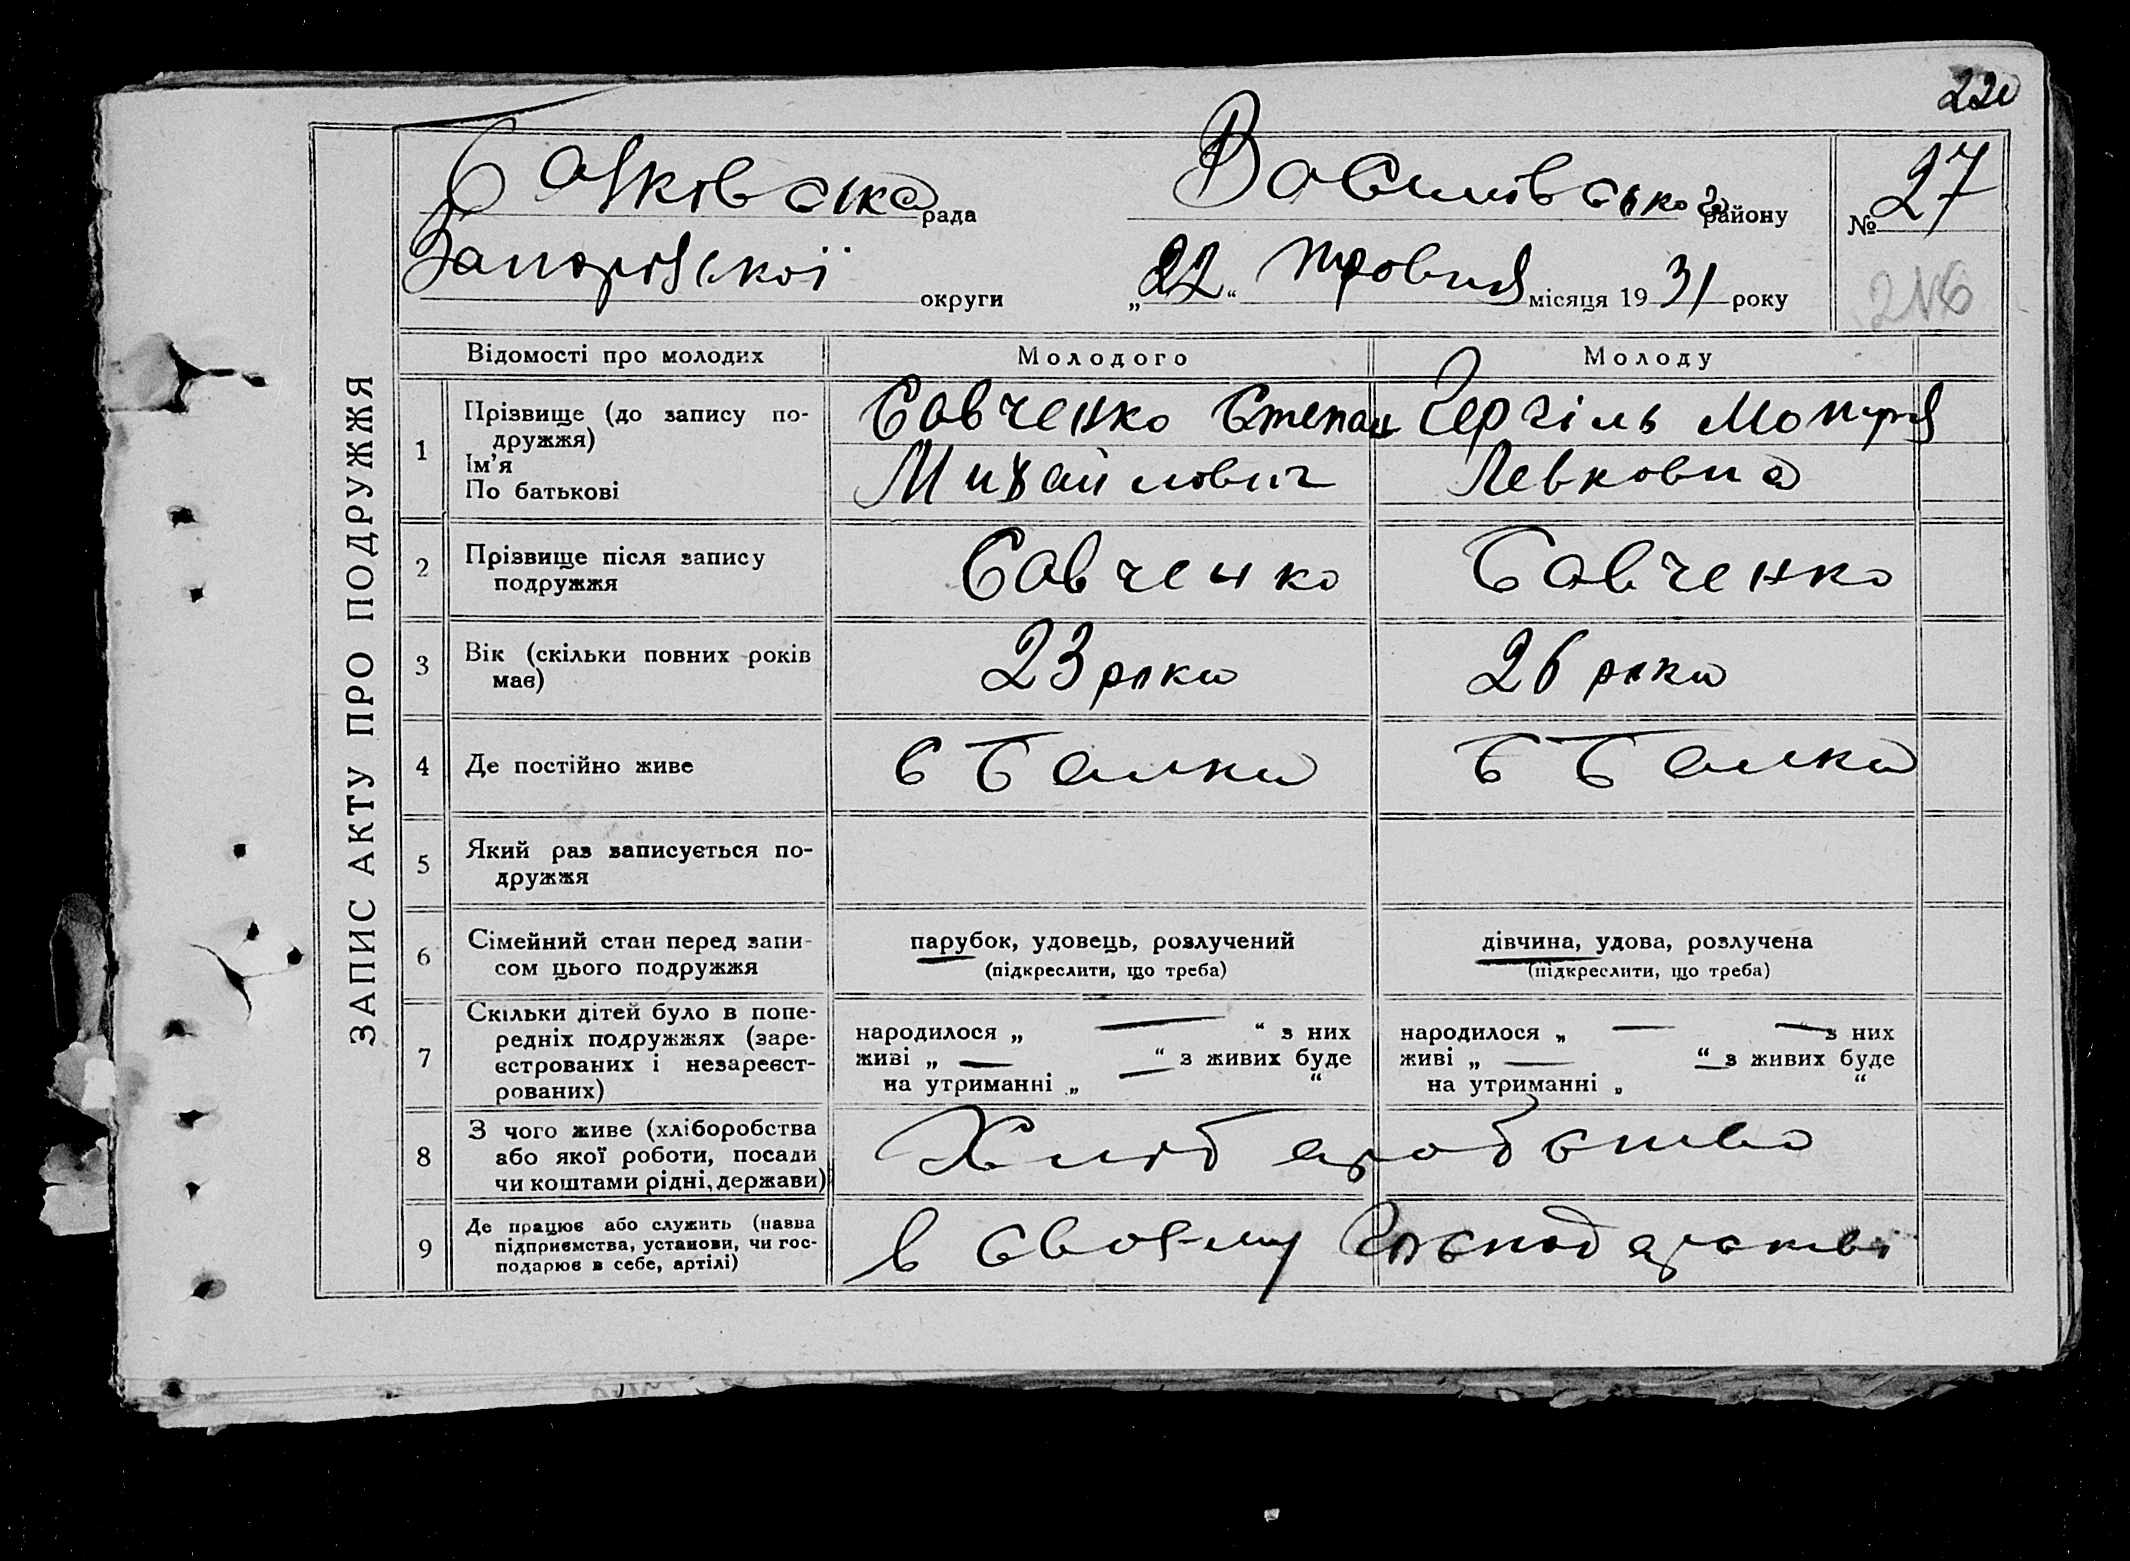 220
Балківська рада Василівського району № 27
Запорізької округи „22“ травня місяця 1931 року
216
ЗАПИС АКТУ ПРО ПОДРУЖЖЯ
Відомості про молодих Молодого Молоду
1 Прізвище (до запису по-
дружжя)
Ім'я
По батькові
Савченко Степан
Михайлович
Мотря
Левковна
2 Прізвище після запису
подружжя
Савченко Савченко
3 Вік (скільки повних років
має)
23 роки 26 роки
4 Де постійно живе с Балки с Балки
5 Який раз записується по-
дружжя
6 Сімейний стан перед запи-
сом цього подружжя
парубок, удовець, розлучений
(підкреслити, що треба)
дівчина, удова, розлучена
(підкреслити, що треба)
7 Скільки дітей було в попе-
редніх подружжях (заре-
єстрованих і незареєст-
рованих)
народилося „ — “ з них
живі „ — “ з живих буде
на утриманні „ — “
народилося „ — — з них
живі „ — “ з живих буде
на утриманні „ “
8 З чого живе (хліборобства
або якої роботи, посади
чи коштами рідні, держави)
Хліборобство
9 Де працює або служить (назва
підприємства, установи, чи гос-
подарює в себе, артілі)
в своему господарстві